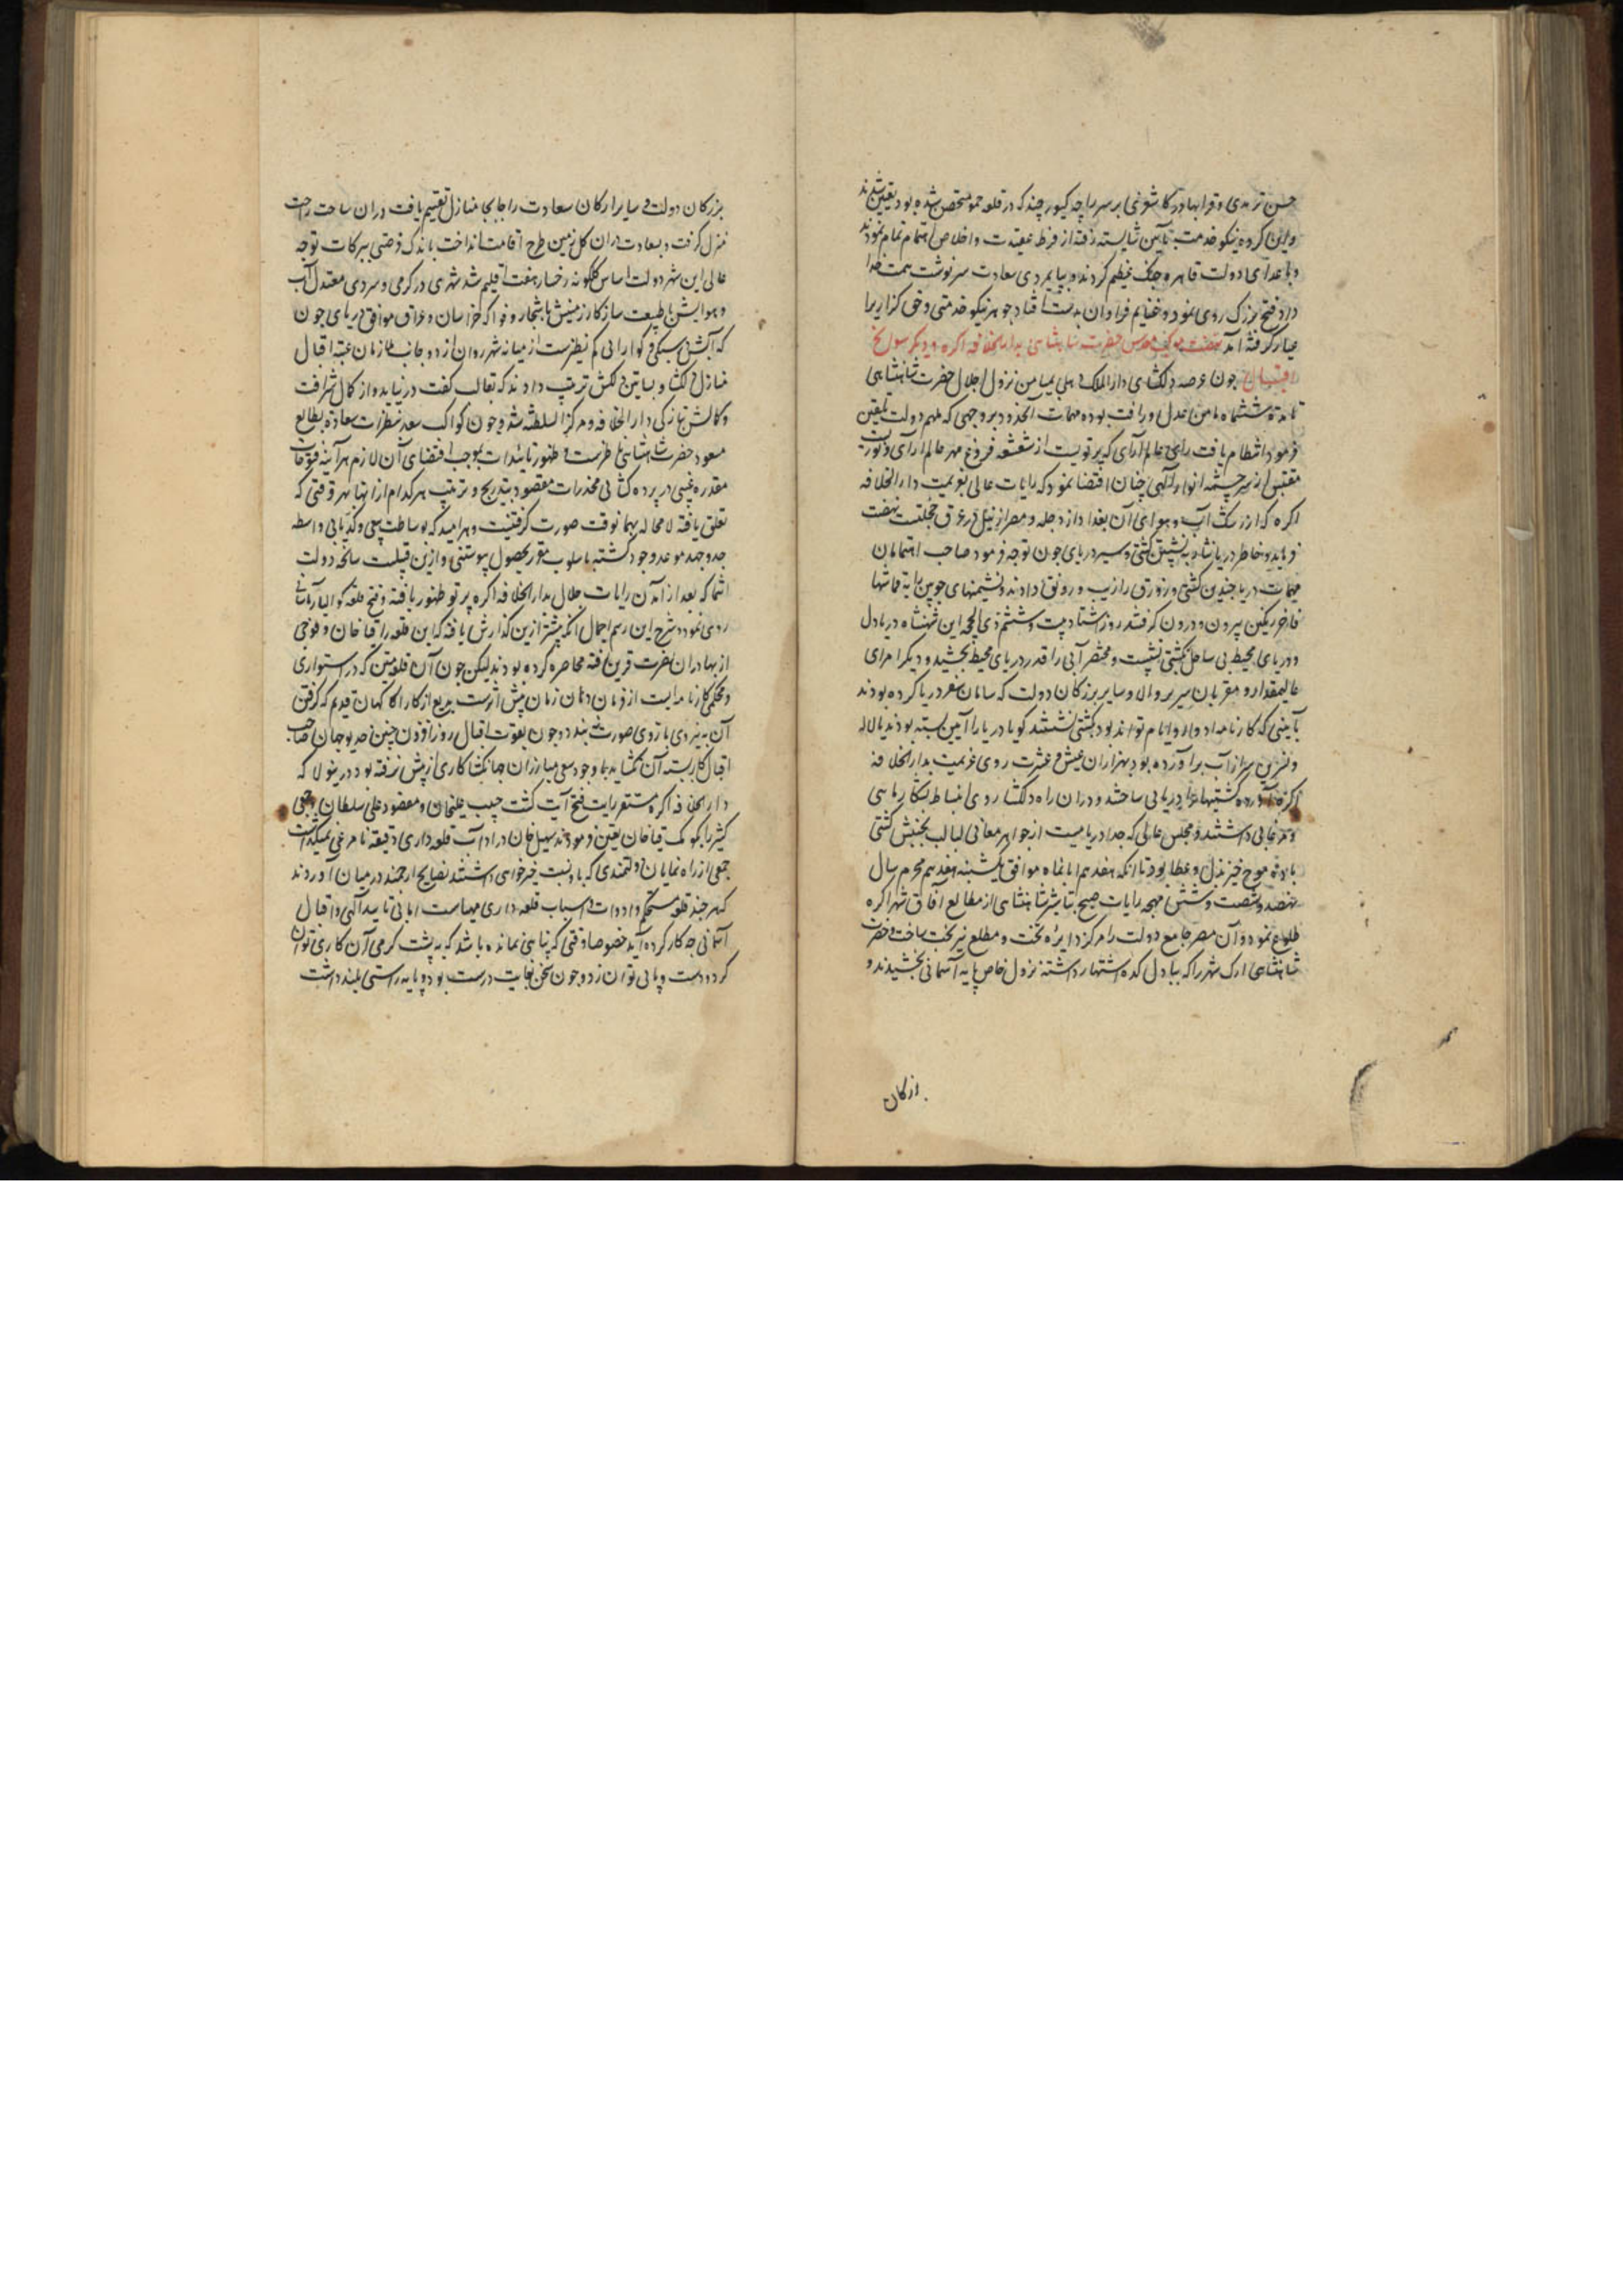 حسن ترمدی و قرا بهادر کاشغری بر سر راجه کپور چند که در قلعه جمو متحصن شده بود تعین شدند
و این گروه نیکو خدمت بآیین شایسته رفته از فرط عقیدت و اخلاص اهتمام تمام نمودند
و با اعدای دولت قاهره جنگ عظیم کردند و بپایمردی سعادت سرنوشت همت خدا
داد فتح بزرگ روی نمود و غنایم فراوان بدست افتاد جوهر نیکو خدمتی و حق گزاری را
عیار گرفته آمد نهضت موکب مقدس حضرت شاهنشاهی بدارالخلافه اکره و دیگر سوانح
اقبال چون عرصه دلکشای دارالملک دهلی بمیامن نزول اجلال حضرت شاهنشاهی
تا مدت ششماه مامن عدل و رافت بوده مهمات آنحدود بروجهی که ملهم دولت تلقین
فرمود انتظام یافت رای عالم آرای که پرتویست از شعشعه فروغ مهر عالم آرای و نوریست
مقتبس از سرچشمه انوار الهی چنان اقتضا نمود که رایات عالی بعزیمت دارالخلافه
اکره که از رشک آب و هوای آن بغداد از دجله و مصر از نیل در عرق خجلتست نهضت
فرماید و خاطر دریانشاه به نشستن کشتی و سیر دریای جون توجه فرمود صاحب اهتمامان
مهمات دریا چندین کشتی و زورق را زیب و رونق دادند و نشیمنهای چوبین را به قماشها
فاخر رنگین بیرون و درون گرفتند روز اشتاد بیست و ششم ذی الحجه این شهنشاه دریادل
و دریای محیط بی ساحل بکشتی نشست و مختصر آبی را قدر دریای محیط بخشید و دیگر امرای
عالیمقدار و مقربان سریر والا و سایر بزرگان دولت که سامان سفر دریا کرده بودند
بآیینی که کارنامه ادوار و ایام تواند بود بکشتی نشستند گویا دریا را آیین بسته بودند یا لاله
و نسرین سر از آب برآورده بود بهزاران عیش و عشرت روی عزیمت بدارالخلافه
اکره آورده کشتیها را دریایی ساختند و دران راه دلکشا روی انبساط بشکار ماهی
و مرغابی داشتند و مجلس عالی که جدا دریاییست از جواهر معانی لبالب بجنبش کشتی
باده موج خیز بذل و عطا بود تا آنکه هفدهم ابانماه موافق یکشنبه هفدهم محرم سال
نهصد و شصت و شش مهجه رایات صبح تباشیر شاهنشاهی از مطالع آفاق شهر اکره
طلوع نمود و آن مصر جامع دولت را مرکز دایره تخت و مطلع نیر بخت ساخت و حضرت
شاهنشاهی ارک شهر را که ببادل کده اشتهار داشت نزول خاص پایه آسمانی بخشیدند و
ارکان
بزرکان دولت و سایر ارکان سعادت را جابجا منازل تقسیم یافت و دران ساحت راحت
منزل گرفت و بسعادت دران گل زمین طرح اقامت انداخت باندک فرصتی ببرکات توجه
عالی این شهر دولت اساس گلگونه رخسار هفت اقلیم شد شهری در گرمی و سردی معتدل آب
و هوایش با طبیعت سازگار زمینش با اشجار و فواکه خراسان و عراق موافق دریای جون
که آبش در سبکی و گوارایی کم نظیرست از میانه شهر روان از دو جانب ملازمان عتبه اقبال
منازل دلکشا و بساتین دلکش ترتیب دادند که بقالب گفت درنیاید و از کمال شرافت
و کالش تازگی دارالخلافه و مرکز السلطنه شد و چون کواکب سعد نظرات سعاده بطالع
مسعود حضرت شاهنشاهی ناظرست و ظهور تائیدات بموجب اقتضای آن لازم هرآینه فتوحات
مقدره غیبی در پرده کشائی مخدرات مقصود بتدریج و ترتیب هر کدام از انها بهر وقتی که
تعلق یافته لامحاله بهمانوقت صورت گرفتنیست و هر امید که بوساطت سعی و کدیابی واسطه
جد و جهد موعد وجود گشته باسلوب مقرر بحصول پیوستنی و ازین قبیلست سانحه دولت
انتما که بعد از آمدن رایات جلال بدارالخلافه اکره پرتو ظهور یافته و فتح قلعه کوالیار آسانی
روی نمود و شرح این رسم اجمال آنکه پیشتر ازین گذارش یافته که این قلعه را قیاخان و فوجی
از بهادران نصرت قرین رفته محاصره کرده بودند لیکن چون آن قلعه متین که در استواری
و محکمی کارنامه ایست از فرمان دهان زمان پیش اثریست بدیع از کار آگاهان قدیم که گرفتن
آن به نیروی بازوی صورت نبندد و چون بقوت اقبال روز افزون چنین خدیو جهان صاحب
اقبال کار بسته آن نگشاید با وجود سعی مبارزان جهانگشا کاری از پیش نرفته بود درینولا که
دارالخلافه اکره مستقر رایات فتح آیت گشت حبیب علیخان و مقصود علی سلطان و جمعی
کثیر را بکومک قیاخان تعین فرمودند سهیل خان در ادب قلعه داری دقیقه نامرعی نمیگذاشت
جمعی از راه نمایان دولتمندی که باو نسبت خیرخواهی داشتند نصایح ارجمند در میان آوردند
که هر چند قلعه مستحکم و ادوات و اسباب قلعه داری مهیاست اما بی تایید الهی و اقبال
آسمانی چه کار کرده آید خصوصا وقتی که پناهی نمانده باشد که به پشت گرمی آن کاری توان
کرد و دست و پایی توان زد و چون سخن بغایت درست بود و پایه راستی بلند داشت